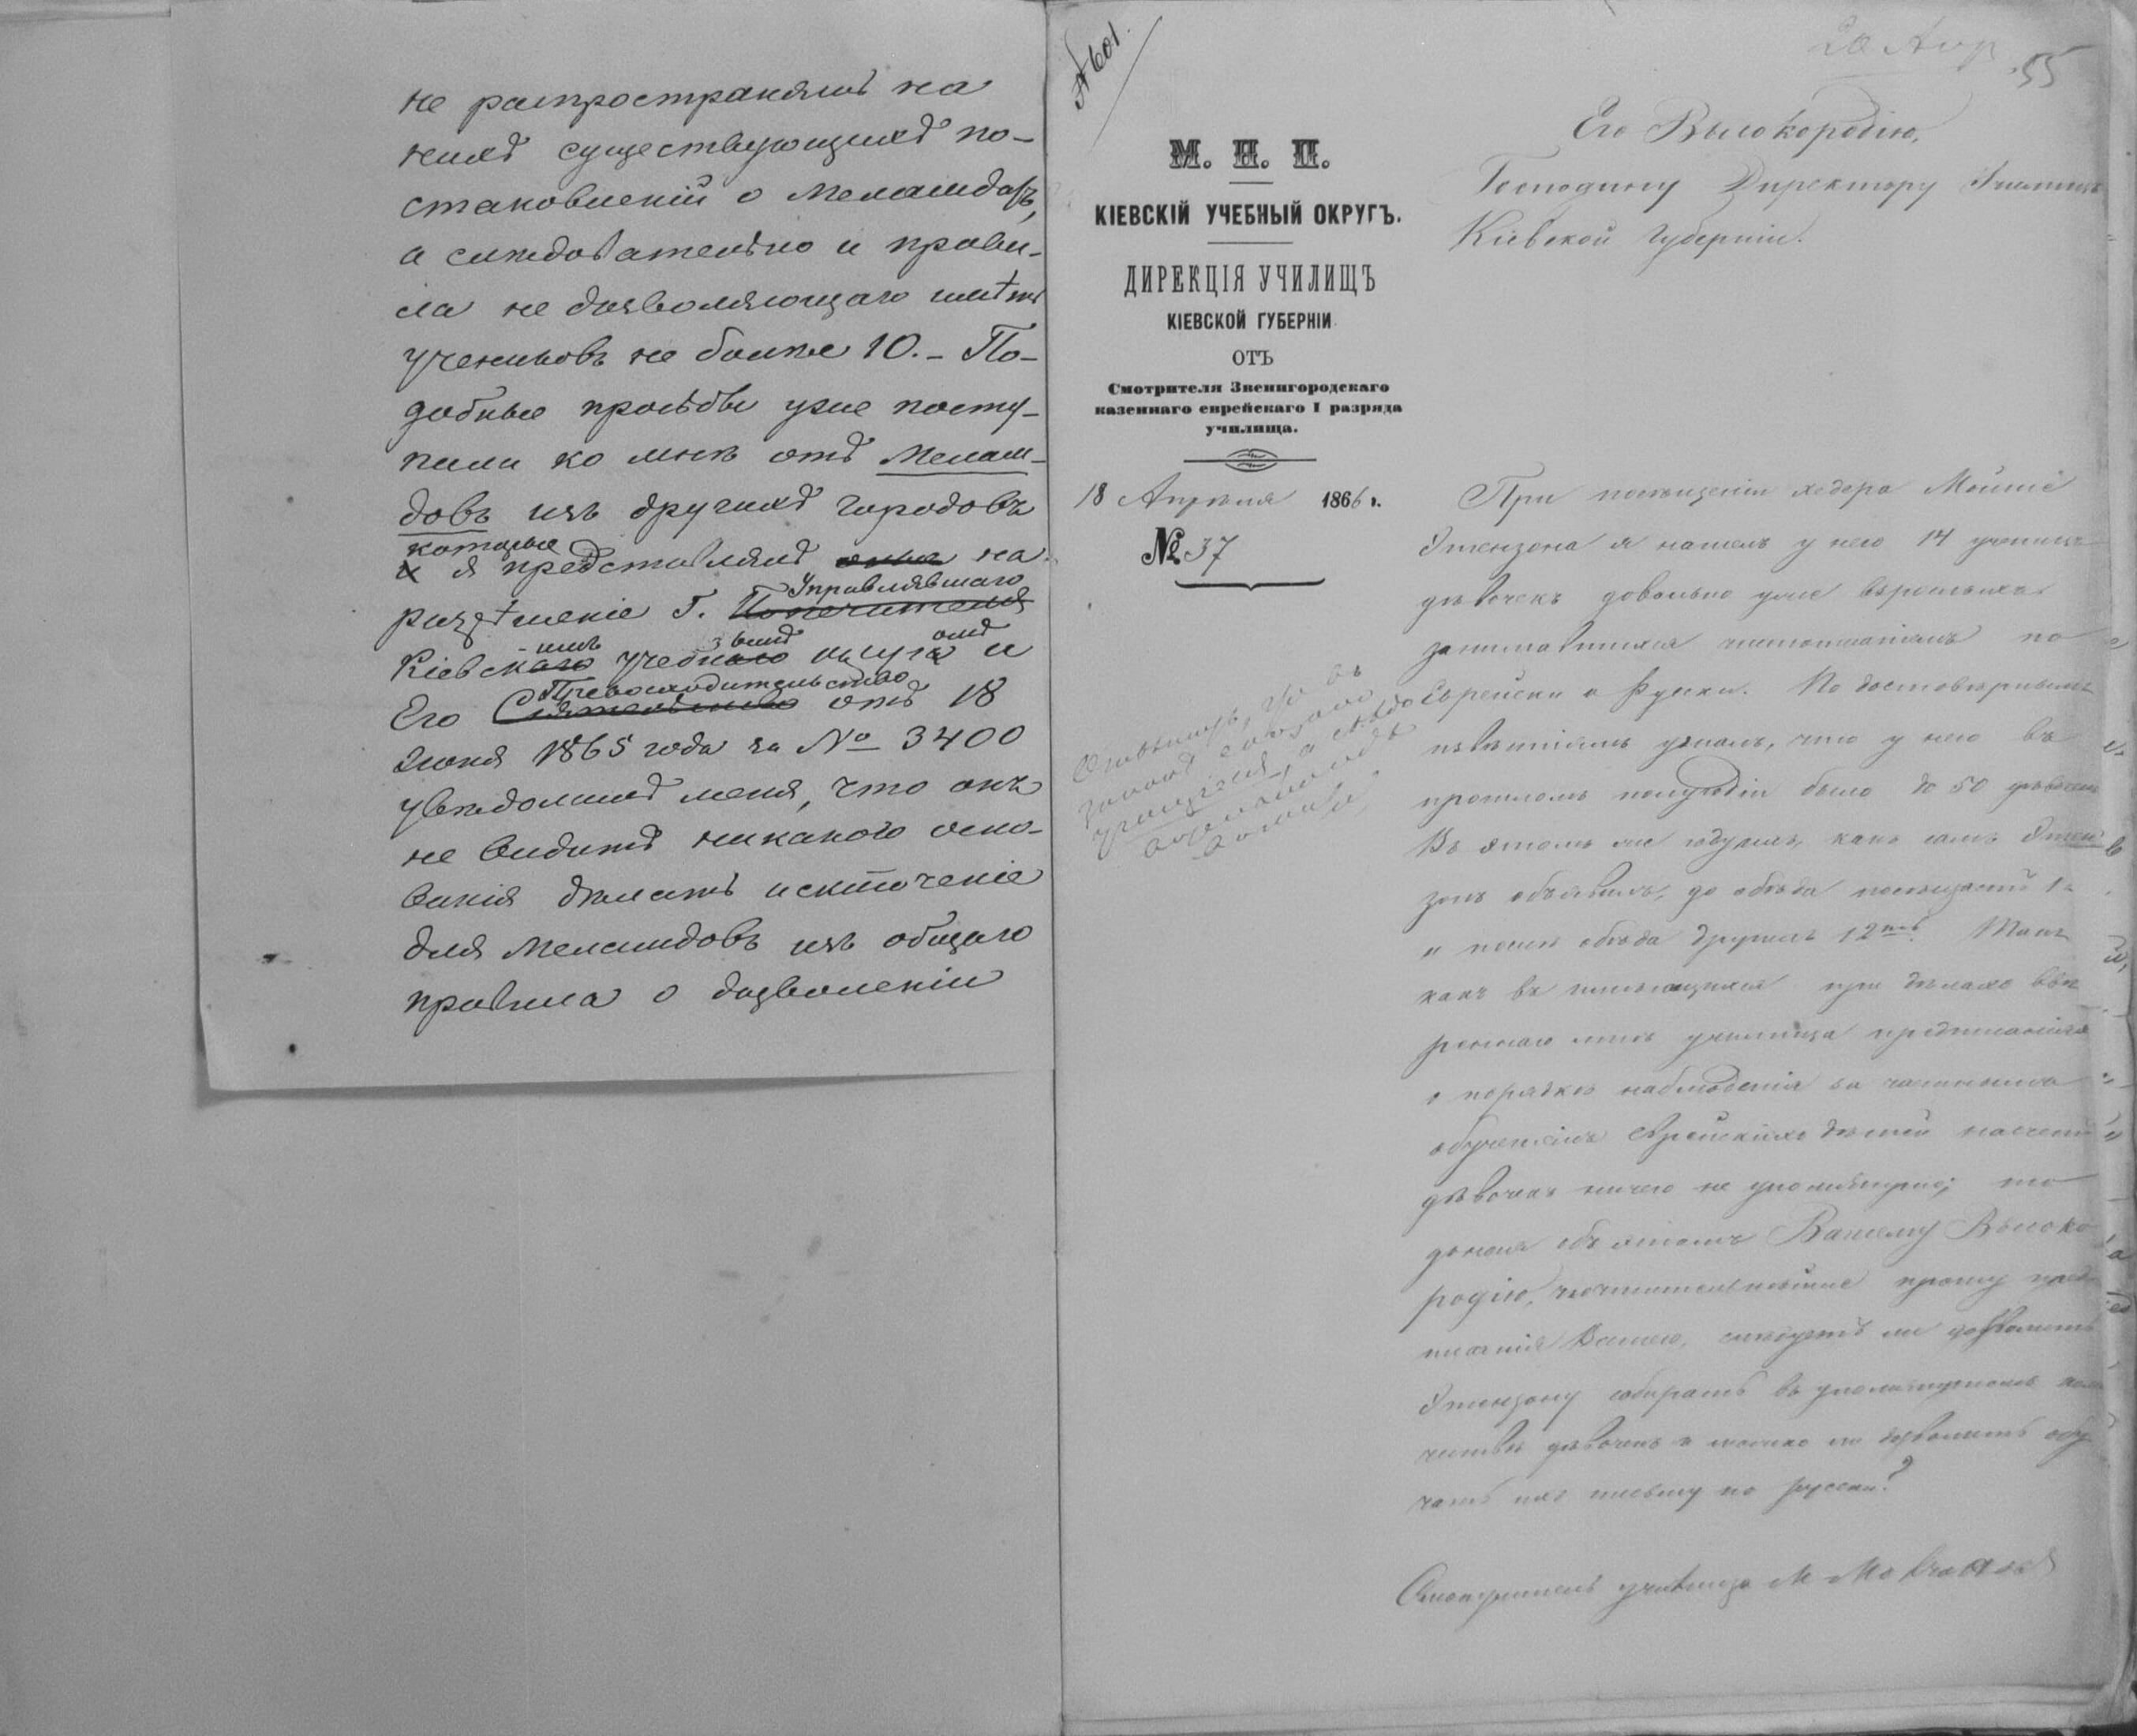 не распространять на
нихъ существующихъ по-
становленій о Меламдахъ,
а слѣдовательно и прави-
ла не дозволяющаго имѣть
учениковъ не болѣе 10. – По-
добные просьбы уже посту-
пили ко мнѣ отъ Мелам-
довъ изъ другихъ городовъ
которые
и я представлялъ на
Управлявшаго
разрѣшеніе Г. Попечителя
Кіевскаго учебнаго округа и
Превосходительство
Его Сіятельство отъ 18
Іюня 1865 года за № 3400
увѣдомилъ меня, что онъ
не видитъ никакого осно-
ванія дѣлать исключеніе
для Меламдовъ изъ общаго
правила о дозволеніи
№ 601.
20 Апр
55
М. Н. П.
КІЕВСКІЙ УЧЕБНЫЙ ОКРУГЪ.
ДИРЕКЦІЯ УЧИЛИЩЪ
КІЕВСКОЙ ГУБЕРНІИ
ОТЪ
Смотрителя Звенигородскаго
казеннаго еврейскаго I разряда
училища.
18 Апрѣля 1866 г.
№ 37
Его Высокородію,
Господину Директору Училищъ
Кіевской Губерніи.
При посѣщеніи хедера Мойше
Этензона я нашелъ у него 14 ученицъ
дѣвочекъ довольно уже взрослыхъ
занимавшихся чистописаніемъ по
Еврейски и Руски. По достовѣрнымъ
извѣстіямъ узналъ, что у него въ
прошломъ полугодіи было до 50 дѣвочекъ
Въ этомъ же полугодіи, какъ самъ Этен
зонъ объявилъ, до обѣда посѣщаютъ
и послѣ обѣда другихъ 12ть. Такъ
какъ въ имѣющихся при дѣлахъ ввѣ
реннаго мнѣ училища предписаніяхъ
о порядкѣ наблюденія за частнымъ
обученіемъ Еврейскихъ дѣтей насчетъ
дѣвочекъ ничего не упомянуто; то
донося объ этомъ Вашему Высоко
родію, почтительнѣйше прошу пред
писанія Вашего, слѣдуетъ ли дозволить
Этензону собирать въ упомянутомъ коли
чествѣ дѣвочекъ и можно ли дозволить обу
чать ихъ письму по русски?
Смотритель училища М